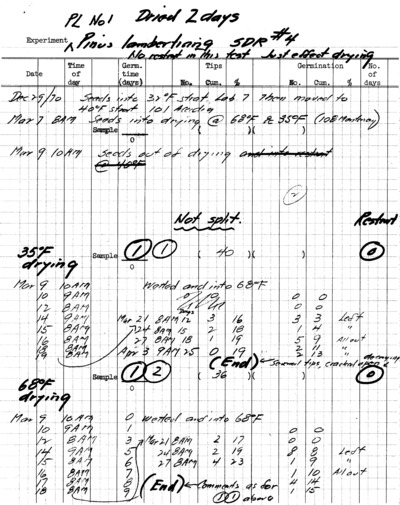 PL No1 Dried 2 days
Experiment Pinus lambertiana SDR #4
No restrat in this test Just effect drying
Date Time of day Germ. time (days) Tips No. Cum. % Germination No. Cum. % No. of days
Dec 29/70 Seeds into 32°F strat Lab 7 Then moved to
40°F strat 101
Mar 7 8AM Seeds into drying @ 68°F & 35°F
Sample 0 ( )( )( )
Mar 9 10AM Seeds out of drying and into restrat
@ 40°F
2
Not split. Restrat
35°F drying Sample 1 1 0 ( 40 )( )( 0 )
Mar 9 10AM Wetted and into 68°F
10 9AM 0 0
12 8AM 0 0
14 9AM Mar 21 8AM 12 3 16 3 3 Left
15 8AM 24 8AM 15 2 18 1 4 "
16 8AM 27 8AM 18 1 19 5 9 All out
18 8AM 2 11 "
19 8AM Apr 3 9AM 25 0 19 2 13 "
(End) Several tips, cracked open &
68°F drying Sample 1 2 0 ( 36 )( )( 0 )
Mar 9 10AM 0 Wetted and into 68°F
10 9AM 1 0 0
12 8AM 3 Mar 21 8AM 2 17 0 0
14 9AM 5 24 8AM 2 19 8 8 Left
15 8AM 6 27 8AM 4 23 1 9 "
16 8AM 7 1 10 All out
17 8AM 8 (End) Comments as for 4 14
18 8AM 9 1 1 above 1 15